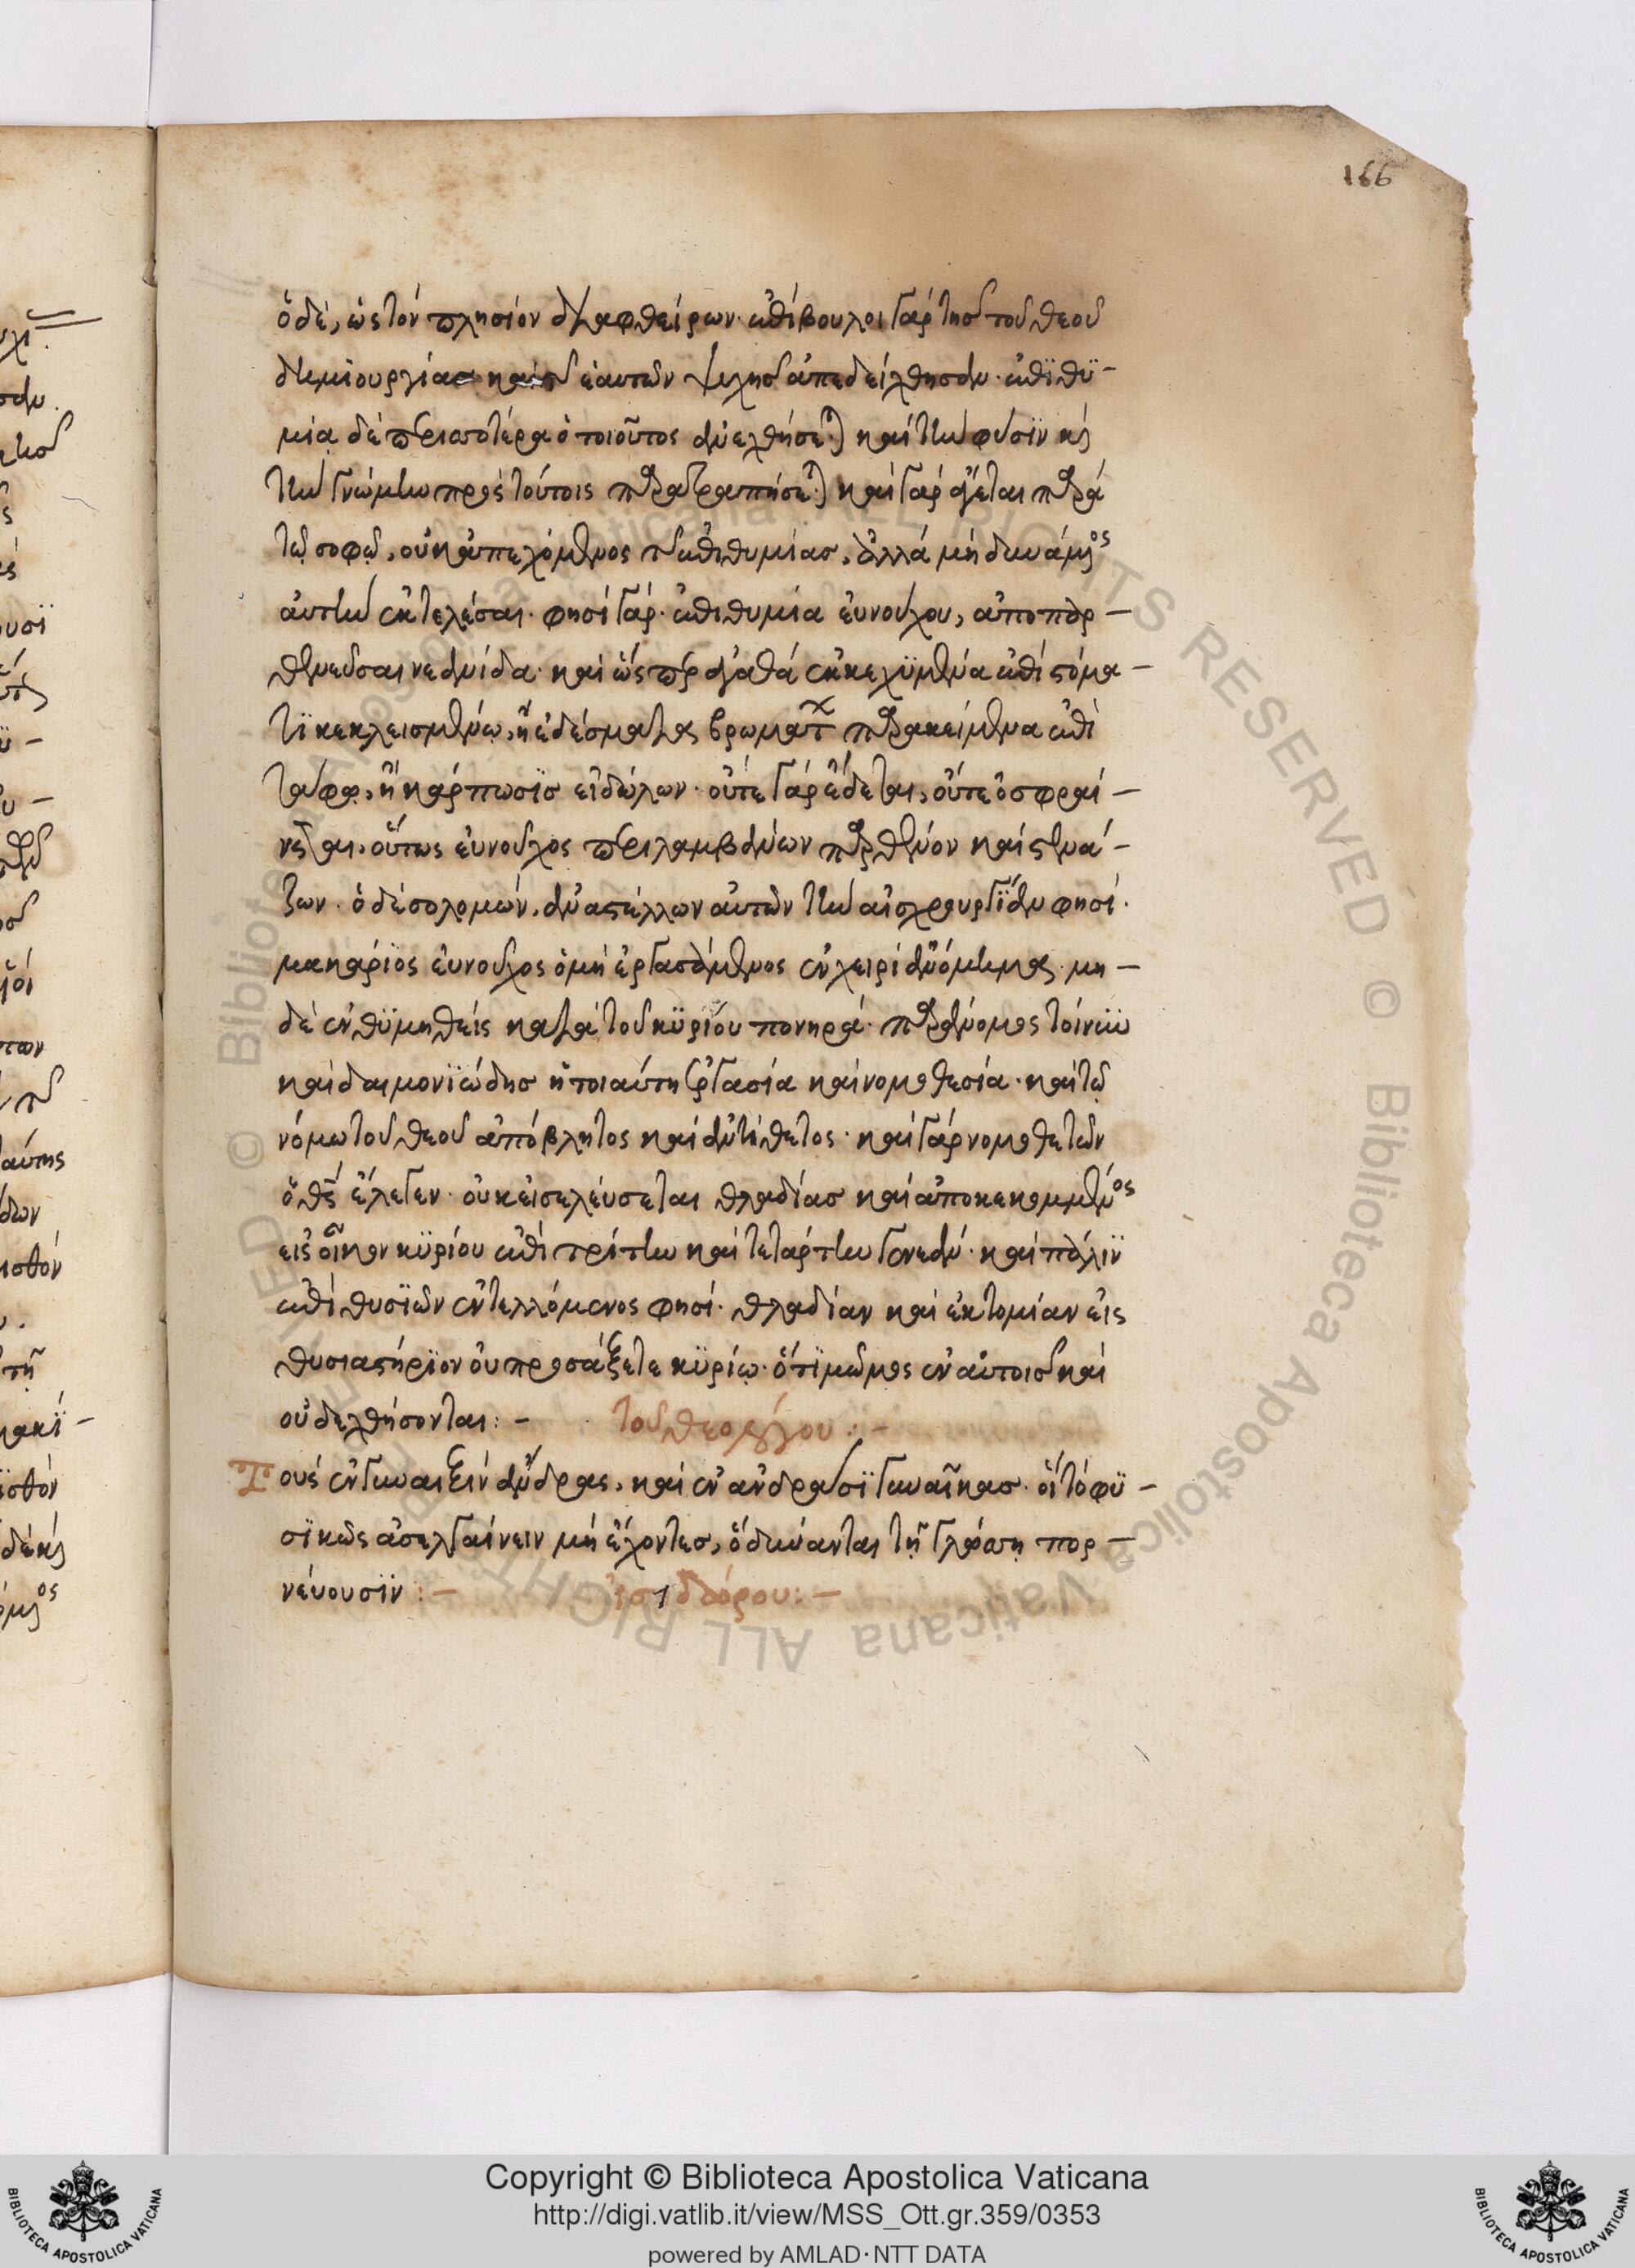 166
ὁ δὲ, ὡς τὸν πλησίον διαφθείρων· ἐπίβουλοι γὰρ τῆς τοῦ θεοῦ
δημιουργίας καὶ τῆς ἑαυτῶν ψυχῆς ἀπεδείχθησαν· ἐπϊθϋ-
μία δὲ περισσοτέρα ὁ τοιοῦτος ἀνελθήσεται καὶ τὴν φύσϊν καὶ
τὴν γνώμην πρὸς τούτοις παρατραπήσεται καὶ γὰρ ᾄδεται παρὰ
τῷ σοφῷ, οὐκ ἀπεχόμενος τῆς ἐπιθυμίας, ἀλλὰ μὴ δυνάμενος
αὐτὴν ἐκτελέσαι· φησὶ γάρ· ἐπιθυμία εὐνούχου, ἀποπαρ-
θενεῦσαι νεανίδα· καὶ ὥσπερ ἀγαθὰ ἐκκεχϋμένα ἐπὶ στόμα-
τϊ κεκλεισμένῳ, ἢ ἐδέσματα βρωμάτων παρακείμενα ἐπὶ
τάφῳ, ἢ κάρπωσϊς εἰδώλων· οὔτε γὰρ ἔδεται, οὔτε ὀσφραί-
νεται, οὕτως εὐνοῦχος περιλαμβάνων παρθένον καὶ στενά-
ζων· ὁ δὲ σολομών, ἀναστέλλων αὐτῶν τὴν αἰσχρουργΐαν φησί·
μακάριος εὐνοῦχος ὁ μὴ ἐργασάμενος ἐν χειρὶ ἀνόμημα· μη-
δὲ ἐνθϋμηθεὶς κατὰ τοῦ κϋρίου πονηρά· παράνομος τοίνυν
καὶ δαιμονϊώδης ἡ τοιαύτη ἐργασία καὶ νομοθεσία· καὶ τῷ
νόμω τοῦ θεοῦ ἀπόβλητος καὶ ἀντίθετος· καὶ γὰρ νομοθετῶν
ὁ θεὸς ἔλεγεν· οὐκ εἰσελεύσεται θλαδίας καὶ ἀποκεκομμένος
εἰς οἶκον κϋρίου ἐπὶ τρίτην καὶ τετάρτην γενεάν· καὶ πάλιν
ἐπὶ θυσϊῶν ἐντελλόμενος φησί· θλαδίαν καὶ ἐκτομίαν εἰς
θυσιαστήρϊον οὐ προσάξετε κϋρίῳ· ὅτϊ μῶμος ἐν αὐτοῖς καὶ
οὐ δεχθήσονται:- τοῦ θεολόγου:-
Τοὺς ἐν γυναιξὶν ἄνδρας, καὶ ἐν ἀνδράσϊ γυναῖκας· οἳ τὸ φϋ-
σϊκῶς ἀσελγαίνειν μὴ ἔχοντες, ὃ δύνανται τῇ γλώσσῃ πορ-
νεύουσϊν:- ἰσιδώρου:-
Copyright © Biblioteca Apostolica Vaticana
http://digi.vatlib.it/view/MSS_Ott.gr.359/0353
powered by AMLAD·NTT DATA